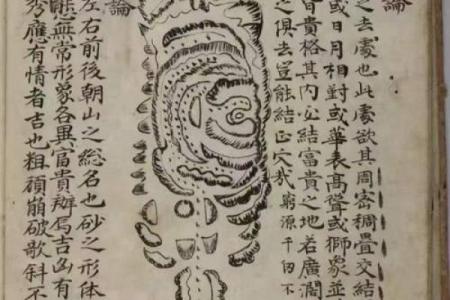 論
之去處也此處欲其周密稠疊交結
或日月相對或華表高聳或獅象並
富貴格其内必結富貴之地若廣濶
之俱去豈能結正穴哉窮源千不
論
左右前後朝山之総名也砂之形体
態無常形象各異富貴辦焉吉凶有
秀應有情者吉也粗頑崩破欹斜不